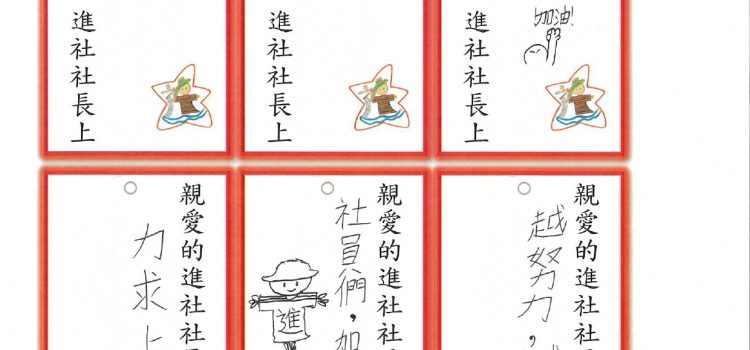 進社社長上
進社社長上
加油!
進社社長上
親愛的進社社
力求上
親愛的進社社
社員們，加
進
親愛的進社社
越努力，